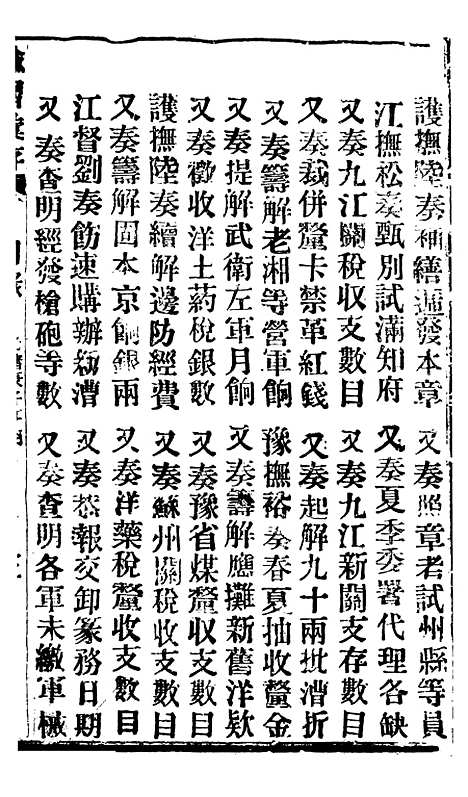 護撫陸奏補繕遞發本章
又奏照章考試州縣等員
江撫松奏甄別試滿知府
又奏夏季委署代理各缺
又奏九江關稅收支數目
又奏九江新關支存數目
又奏裁併釐卡禁革紅錢
又奏起解九十兩批漕折
又奏籌解老湘等營軍餉
豫撫裕奏春夏抽收釐金
又奏提解武衛左軍月餉
又奏籌解應攤新舊洋欵
又奏徵收洋土葯稅銀數
又奏豫省煤釐収支數目
護撫陸奏續解邊防經費
又奏蘇州關稅收支數目
又奏籌解固本京餉銀兩
又奏洋藥稅釐收支數目
江督劉奏飭速購辦漕
又奏恭報交卸篆務日期
又奏查明經發槍砲等數
又奏查明各軍未繳軍械